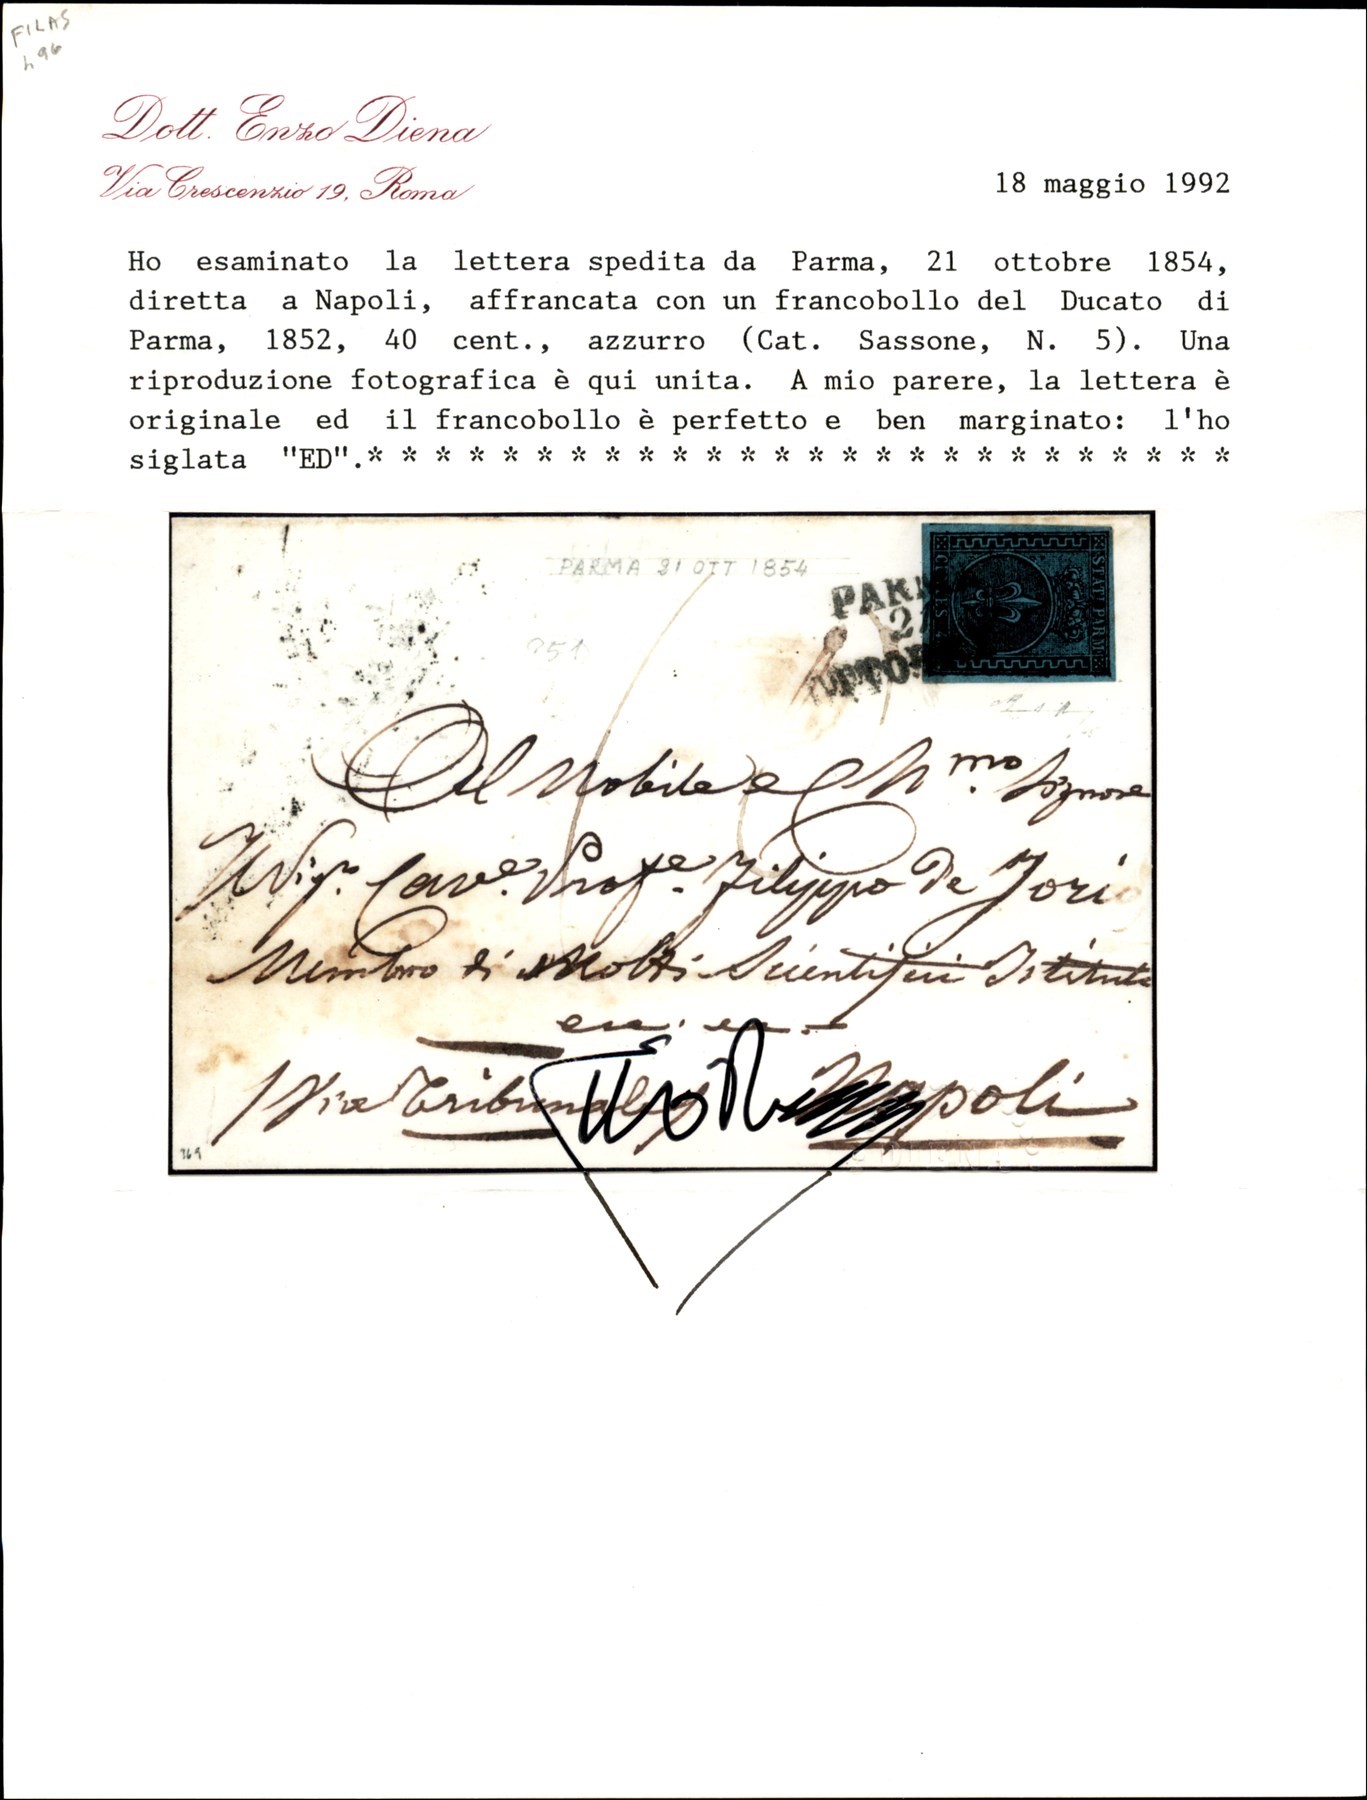 FILAS
Dott. Enzo Diena
Via Crescenzio 19, Roma
18 maggio 1992
Ho esaminato la lettera spedita da Parma, 21 ottobre 1854,
diretta a Napoli, affrancata con un francobollo del Ducato di
Parma, 1852, 40 cent., azzurro (Cat. Sassone, N. 5). Una
riproduzione fotografica è qui unita. A mio parere, la lettera è
originale ed il francobollo è perfetto e ben marginato: l'ho
siglata "ED".* * * * * * * * * * * * * * * * * * * * * * * * * *
PARMA 21 OTT 1854
STATI PARM
251
Al Nobile e Ch.mo Signore
Il Sig.r Cav.e Prof.e Filippo De Jorio
Membro di Molti Scientifici Istituti
Via Tribunali Napoli